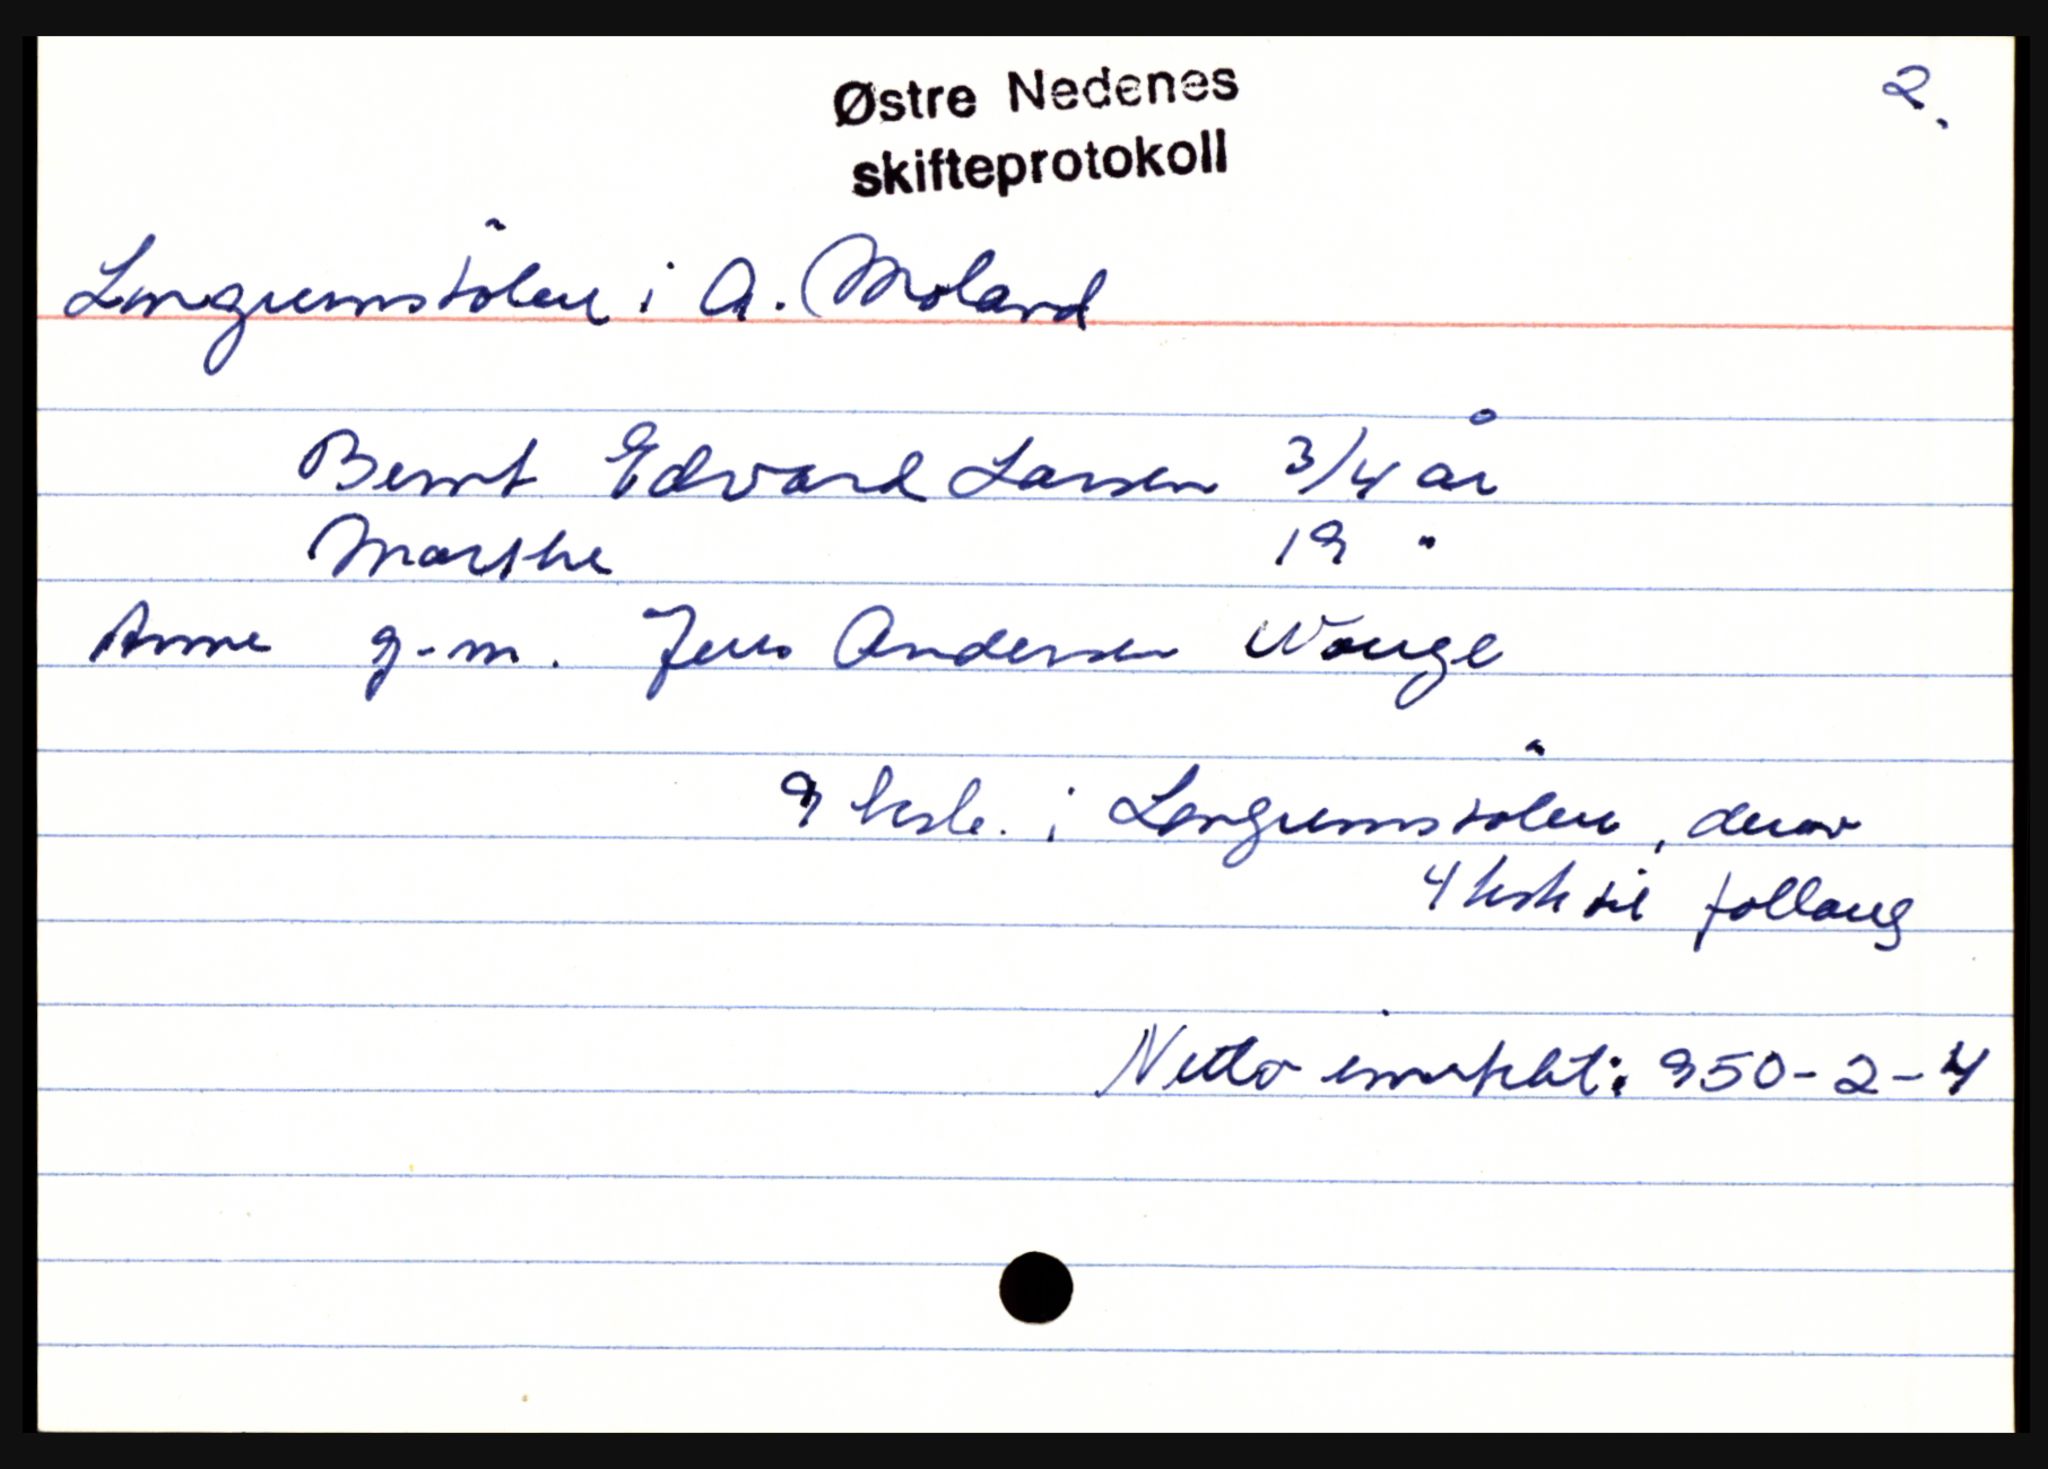 2.
Østre Nedenes
skifteprotokoll
Longumstölen i A. Moland
Bernt Edvard Larsen 3/4 år
Marthe 19 "
Anne g.m. Jens Andersen Wouge
9 kslr. i Longumstölen, derav
4 ksk til follaug
Netto innstekt: 950-2-4